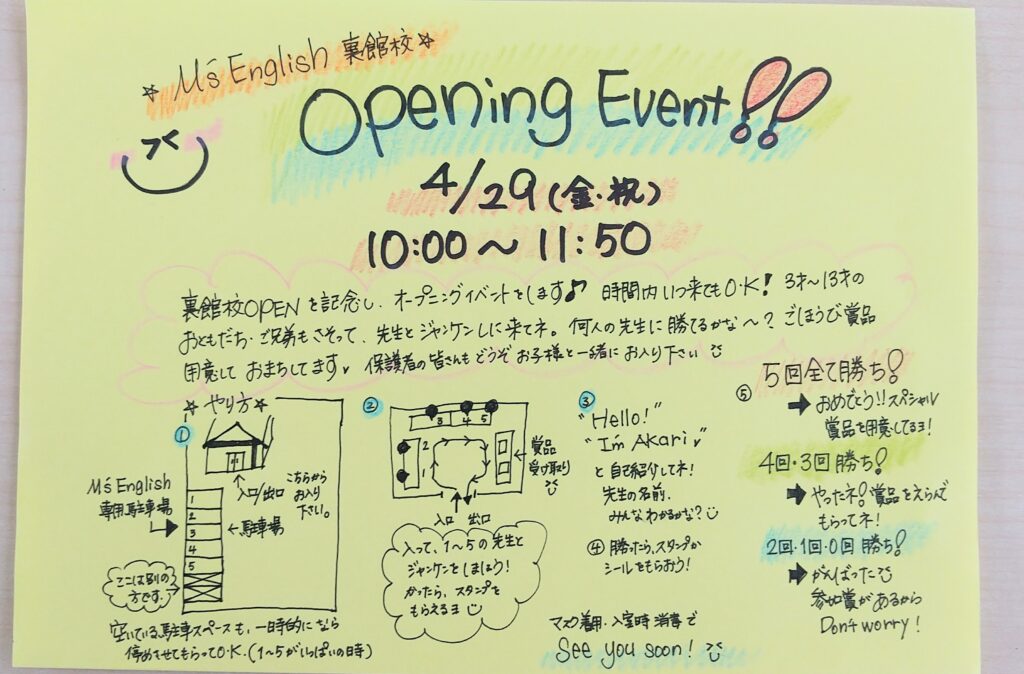 ☆ M's English 裏館校☆
Opening Event!!
4/29(金・祝)
10:00〜11:50
裏館校OPENを記念し、オープニングイベントをします♪ 時間内いつ来てもO・K! 3才〜13才の
おともだち・ご兄弟もさそって、先生とジャンケンしに来てネ。何人の先生に勝てるかな〜?ごほうび賞品
用意して おまちしてます♥ 保護者の皆さんもどうぞお子様と一緒にお入り下さい
☆やり方☆
①
入口/出口
こちらから
お入り
下さい。
M's English
専用駐車場
1
2
3
4
5
←駐車場
ここは別の
方です。
空いている駐車スペースも、一時的になら
停めさせてもらってO・K.(1〜5がいっぱいの時)
②
3 4 5
2
1
賞品
受け取り
入口 出口
入って、1〜5の先生と
ジャンケンをしましょう!
かったら、スタンプを
もらえるヨ
③
"Hello!"
"I'm Akari♥"
と自己紹介してネ!
先生の名前、
みんなわかるかな?
④ 勝ったら、スタンプか
シールをもらおう!
マスク着用・入室時消毒で
See you soon!
⑤
5回全て勝ち!
➡ おめでとう!!スペシャル
賞品を用意してるヨ!
4回・3回勝ち!
➡ やったネ!賞品をえらんで
もらってネ!
2回・1回・0回勝ち!
➡ がんばった
参加賞があるから
Don't worry!